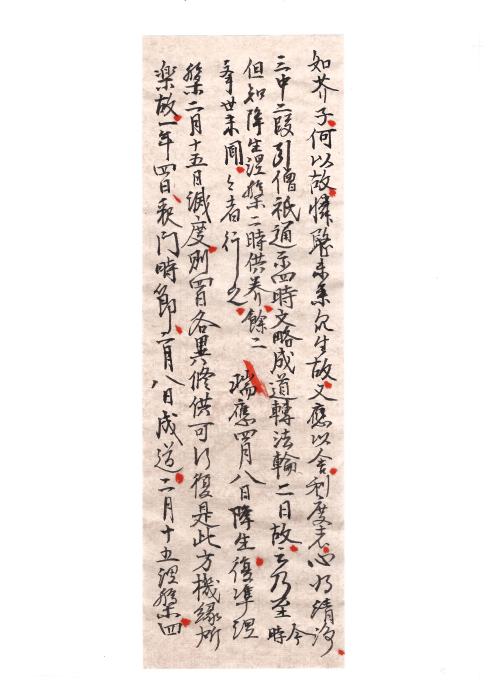 如芥子何以故憐愍未来众生故又應以舍利度者心乃清净
三中二段引僧祇通示四時文略成道轉法輪二日故云乃至今時
但知降生涅槃二時供养餘二
舉世未聞之者行之 瑞應四月八日降生復準涅
槃二月十五日滅度則四日各異修供可行復是此方機緣所
楽故一年四日釈門時節二月八日成道二月十五涅槃四